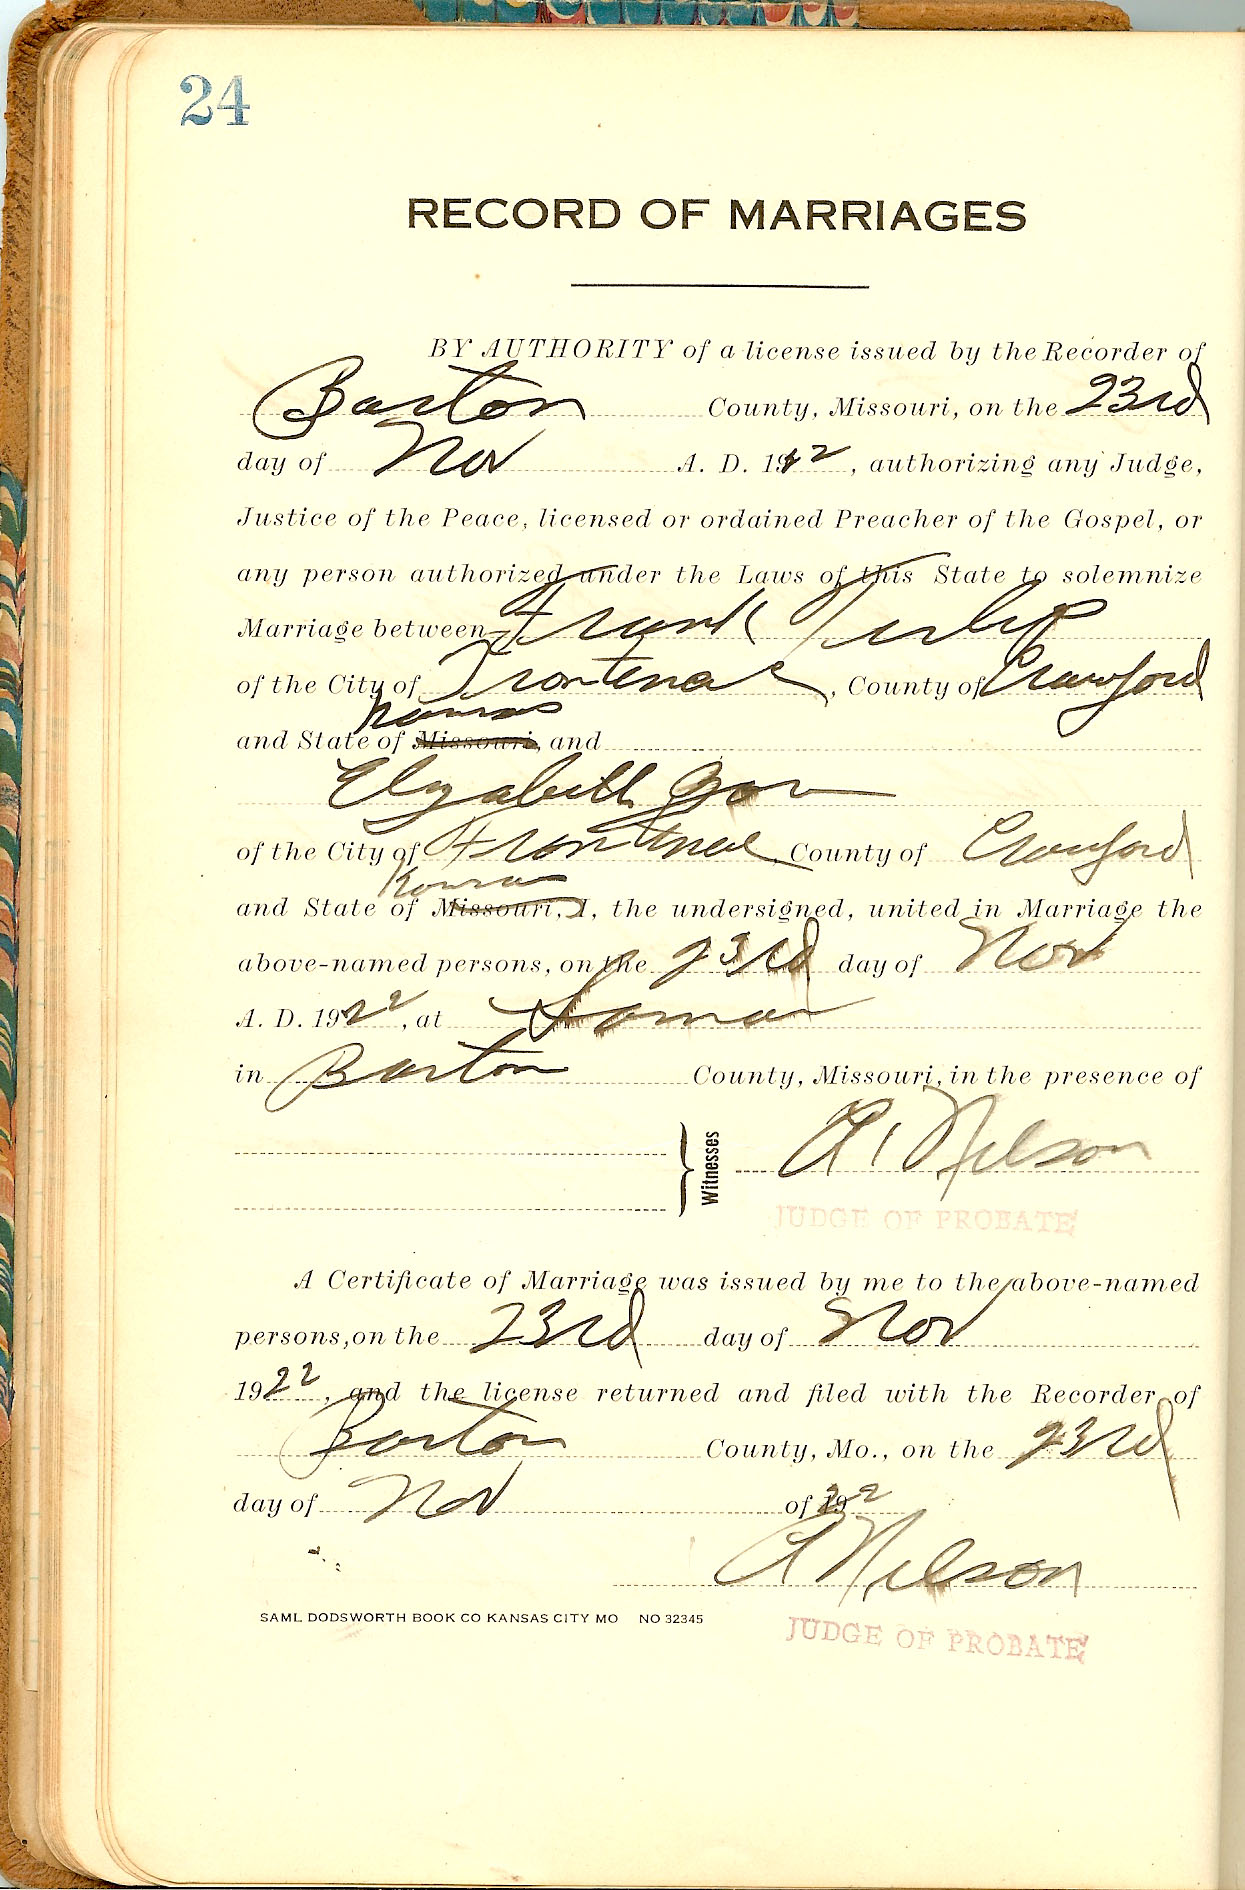 24
RECORD OF MARRIAGES
BY AUTHORITY of a license issued by the Recorder of
Barton County, Missouri, on the 23rd
day of Nov A. D. 1922, authorizing any Judge,
Justice of the Peace, licensed or ordained Preacher of the Gospel, or
any person authorized under the Laws of this State to solemnize
Marriage between Frank
of the City of Frontenac, County of Crawford
Kansas
and State of Missouri, and
Elizabeth
of the City of Frontenac County of Crawford
Kansas
and State of Missouri, I, the undersigned, united in Marriage the
above-named persons, on the 23rd day of Nov
A. D. 1922, at Lamar
in Barton County, Missouri, in the presence of
Witnesses
A. Nelson
JUDGE OF PROBATE
A Certificate of Marriage was issued by me to the above-named
persons, on the 23rd day of Nov
1922, and the license returned and filed with the Recorder of
Barton County, Mo., on the 23rd
day of Nov of 1922
A Nelson
SAML DODSWORTH BOOK CO KANSAS CITY MO NO 32345
JUDGE OF PROBATE